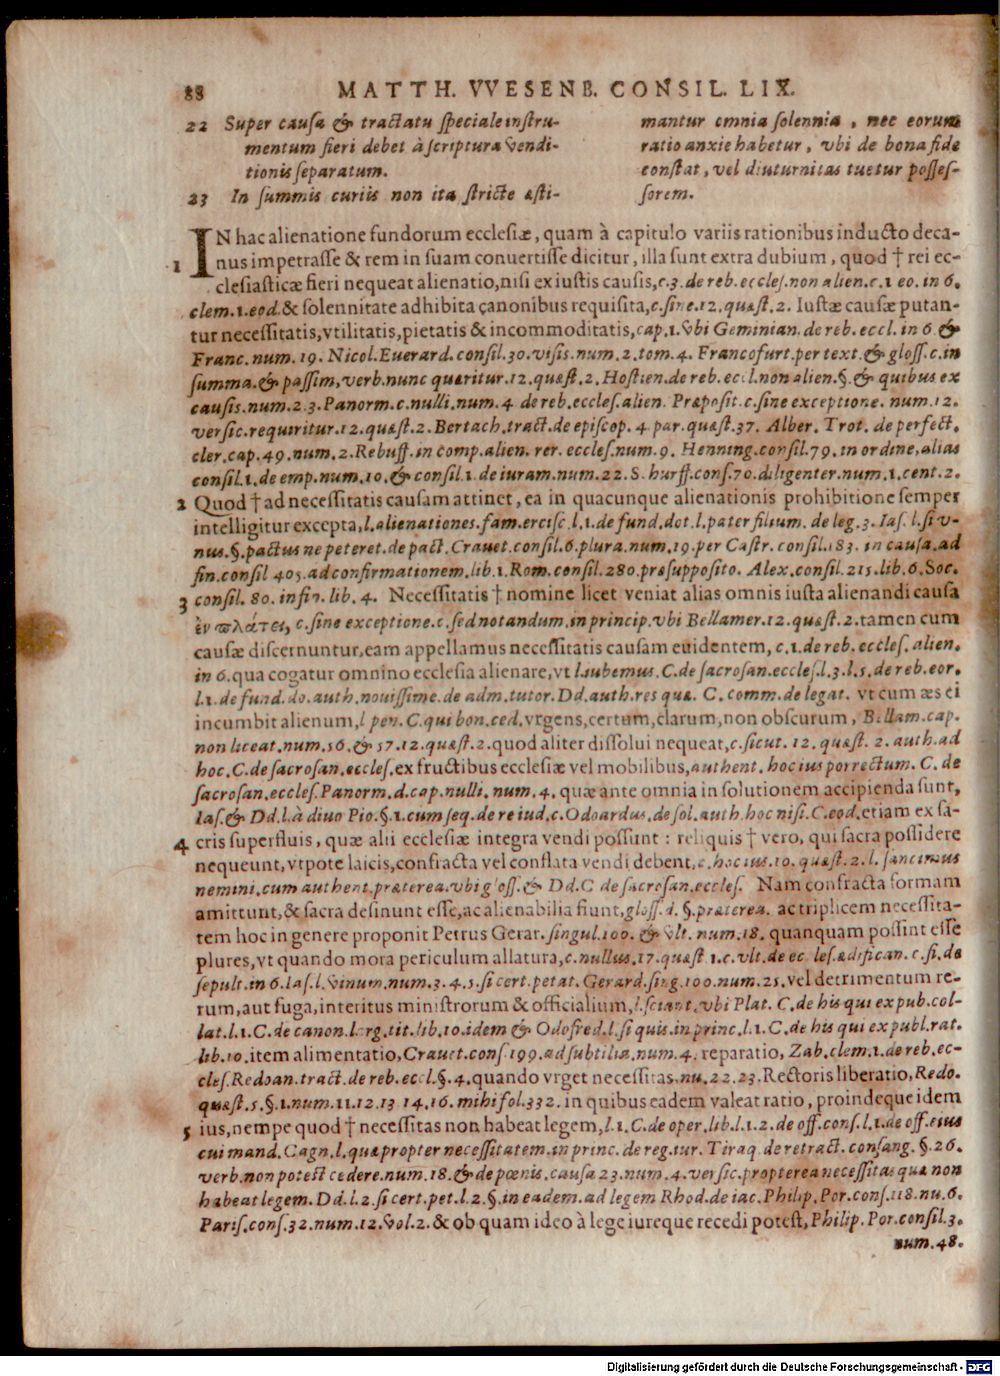 88 MATTH. VVESENB. CONSIL. LIX.
22 Super causa & tractatu speciale instru-
mentum fieri debet à scriptura vendi-
tionis separatum.
23 In summis curiis non ita stricte æsti-
mantur omnia solennia, nec eorum
ratio anxie habetur, vbi de bona fide
constat, vel diuturnitas tuetur posses-
sorem.
IN hac alienatione fundorum ecclesiæ, quam à capitulo variis rationibus inducto deca-
1 nus impetrasse & rem in suam conuertisse dicitur, illa sunt extra dubium, quod † rei ec-
clesiasticæ fieri nequeat alienatio, nisi ex iustis causis, c.3. de reb. eccles. non alien. c.1 eo. in 6.
clem.1. eod. & solennitate adhibita çanonibus requisita, c. sine. 12. quæst. 2. Iustæ causæ putan-
tur necessitatis, vtilitatis, pietatis & incommoditatis, cap.1. vbi Geminian. de reb. eccl. in 6. &
Franc. num. 19. Nicol. Euerard. consil. 30. visis. num. 2. tom. 4. Francofurt. per text. & gloss. c. in
summa. & passim, verb. nunc quæritur. 12. quæst. 2. Hostien. de reb. eccl. non alien. §. & quibus ex
causis. num. 2 3. Panorm. c. nulli. num. 4 de reb. eccles. alien. Præposit. c. sine exceptione. num. 12.
versic. requiritur. 12. quæst. 2. Bertach. tract. de episcop. 4 par. quæst. 37. Alber. Trot. de perfect.
cler. cap. 49. num. 2. Rebuff. in comp. alien. rer. eccles. num. 9. Henning. consil. 79. in ordine, alias
consil. 1. de emp. num. 10. & consil. 1. de iuram. num. 22. S. hurff. cons. 70. diligenter. num. 1. cent. 2.
2 Quod † ad necessitatis causam attinet, ea in quacunque alienationis prohibitione semper
intelligitur excepta, l. alienationes. fam. ercisc. l. 1. de fund. dot. l. pater filium. de leg. 3. Ias. l. si v-
nus. §. pactus ne peteret. de pact. Crauet. consil. 6. plura. num. 19. per Castr. consil. 183. in causa. ad
fin. consil 405. ad confirmationem. lib. 1. Rom. consil. 280. præsupposito. Alex. consil. 215. lib. 6. Soc.
3 consil. 80. in fin. lib. 4. Necessitatis † nomine licet veniat alias omnis iusta alienandi causa
ἐν πλάτει, c. sine exceptione. c. sed notandum. in princip. vbi Bellamer. 12. quæst. 2. tamen cum
causæ discernuntur, eam appellamus necessitatis causam euidentem, c. 1. de reb. eccles. alien.
in 6. qua cogatur omnino ecclesia alienare, vt l. iubemus. C. de sacrosan. eccles. l. 3. l. 5. de reb. eor.
l. 1. de fund. do. auth. nouissime. de adm. tutor. Dd. auth. res quæ. C. comm. de legat. vt cum æs ei
incumbit alienum, l pen. C. qui bon. ced. vrgens, certum, clarum, non obscurum, Bellam. cap.
non liceat. num. 56. & 57. 12. quæst. 2. quod aliter dissolui nequeat, c. sicut. 12. quæst. 2. auth. ad
hoc. C. de sacrosan. eccles. ex fructibus ecclesiæ vel mobilibus, authent. hoc ius porrectum. C. de
sacrosan. eccles. Panorm. d. cap. nulli. num. 4. quæ ante omnia in solutionem accipienda sunt,
Ias. & Dd. l. à diuo Pio. §. 1. cum seq. de re iud. c. Odoardus. de sol. auth. hoc nisi. C. eod. etiam ex sa-
4 cris superfluis, quæ alii ecclesiæ integra vendi possunt : reliquis † vero, qui sacra possidere
nequeunt, vtpote laicis, confracta vel conflata vendi debent, c. hoc ius. 10. quæst. 2. l. sancimus
nemini. cum authent. præterea. vbi gloss. & Dd. C de sacrosan. eccles. Nam confracta formam
amittunt, & sacra desinunt esse, ac alienabilia fiunt, gloss. d. §. præterea. ac triplicem necessita-
tem hoc in genere proponit Petrus Gerar. singul. 100. & vlt. num. 18. quanquam possint esse
plures, vt quando mora periculum allatura, c. nullus. 17. quæst 1. c. vlt. de ec les. ædifican. c. si. de
sepult. in 6. Ias. l. vinum. num. 3. 4. 5. si cert. petat. Gerard. sing. 100. num. 25. vel detrimentum re-
rum, aut fuga, interitus ministrorum & officialium, l. sciant. vbi Plat. C. de his qui ex pub. col-
lat. l. 1. C. de canon. larg. tit. lib. 10. idem & Odofred. l. si quis. in princ. l. 1. C. de his qui ex publ. rat.
lib. 10. item alimentatio, Crauet. cons 199. ad subtilia. num. 4. reparatio, Zab. clem. 1. de reb. ec-
cles. Redoan. tract. de reb. eccl. §. 4. quando vrget necessitas. nu. 22. 23. Rectoris liberatio, Redo.
quæst. 5. §. 1. num. 11. 12. 13 14. 16. mihi fol. 332. in quibus eadem valeat ratio, proindeque idem
5 ius, nempe quod † necessitas non habeat legem, l. 1. C. de oper. lib. l. 1. 2. de off. cons. l. 1. de off. eius
cui mand. Cagn. l. quæ propter necessitatem. in princ. de reg. iur. Tiraq. de retract. consang. §. 26.
verb. non potest cedere. num. 18. & de pœnis. causa 23. num. 4. versic. propterea necessitas quæ non
habeat legem. Dd. l. 2. si cert. pet. l. 2. §. in eadem. ad legem Rhod. de iac. Philip. Por. cons. 118. nu. 6.
Paris. cons. 32. num. 12. vol. 2. & ob quam ideo à lege iureque recedi potest, Philip. Por. consil. 3.
num. 48.
Digitalisierung gefördert durch die Deutsche Forschungsgemeinschaft - DFG